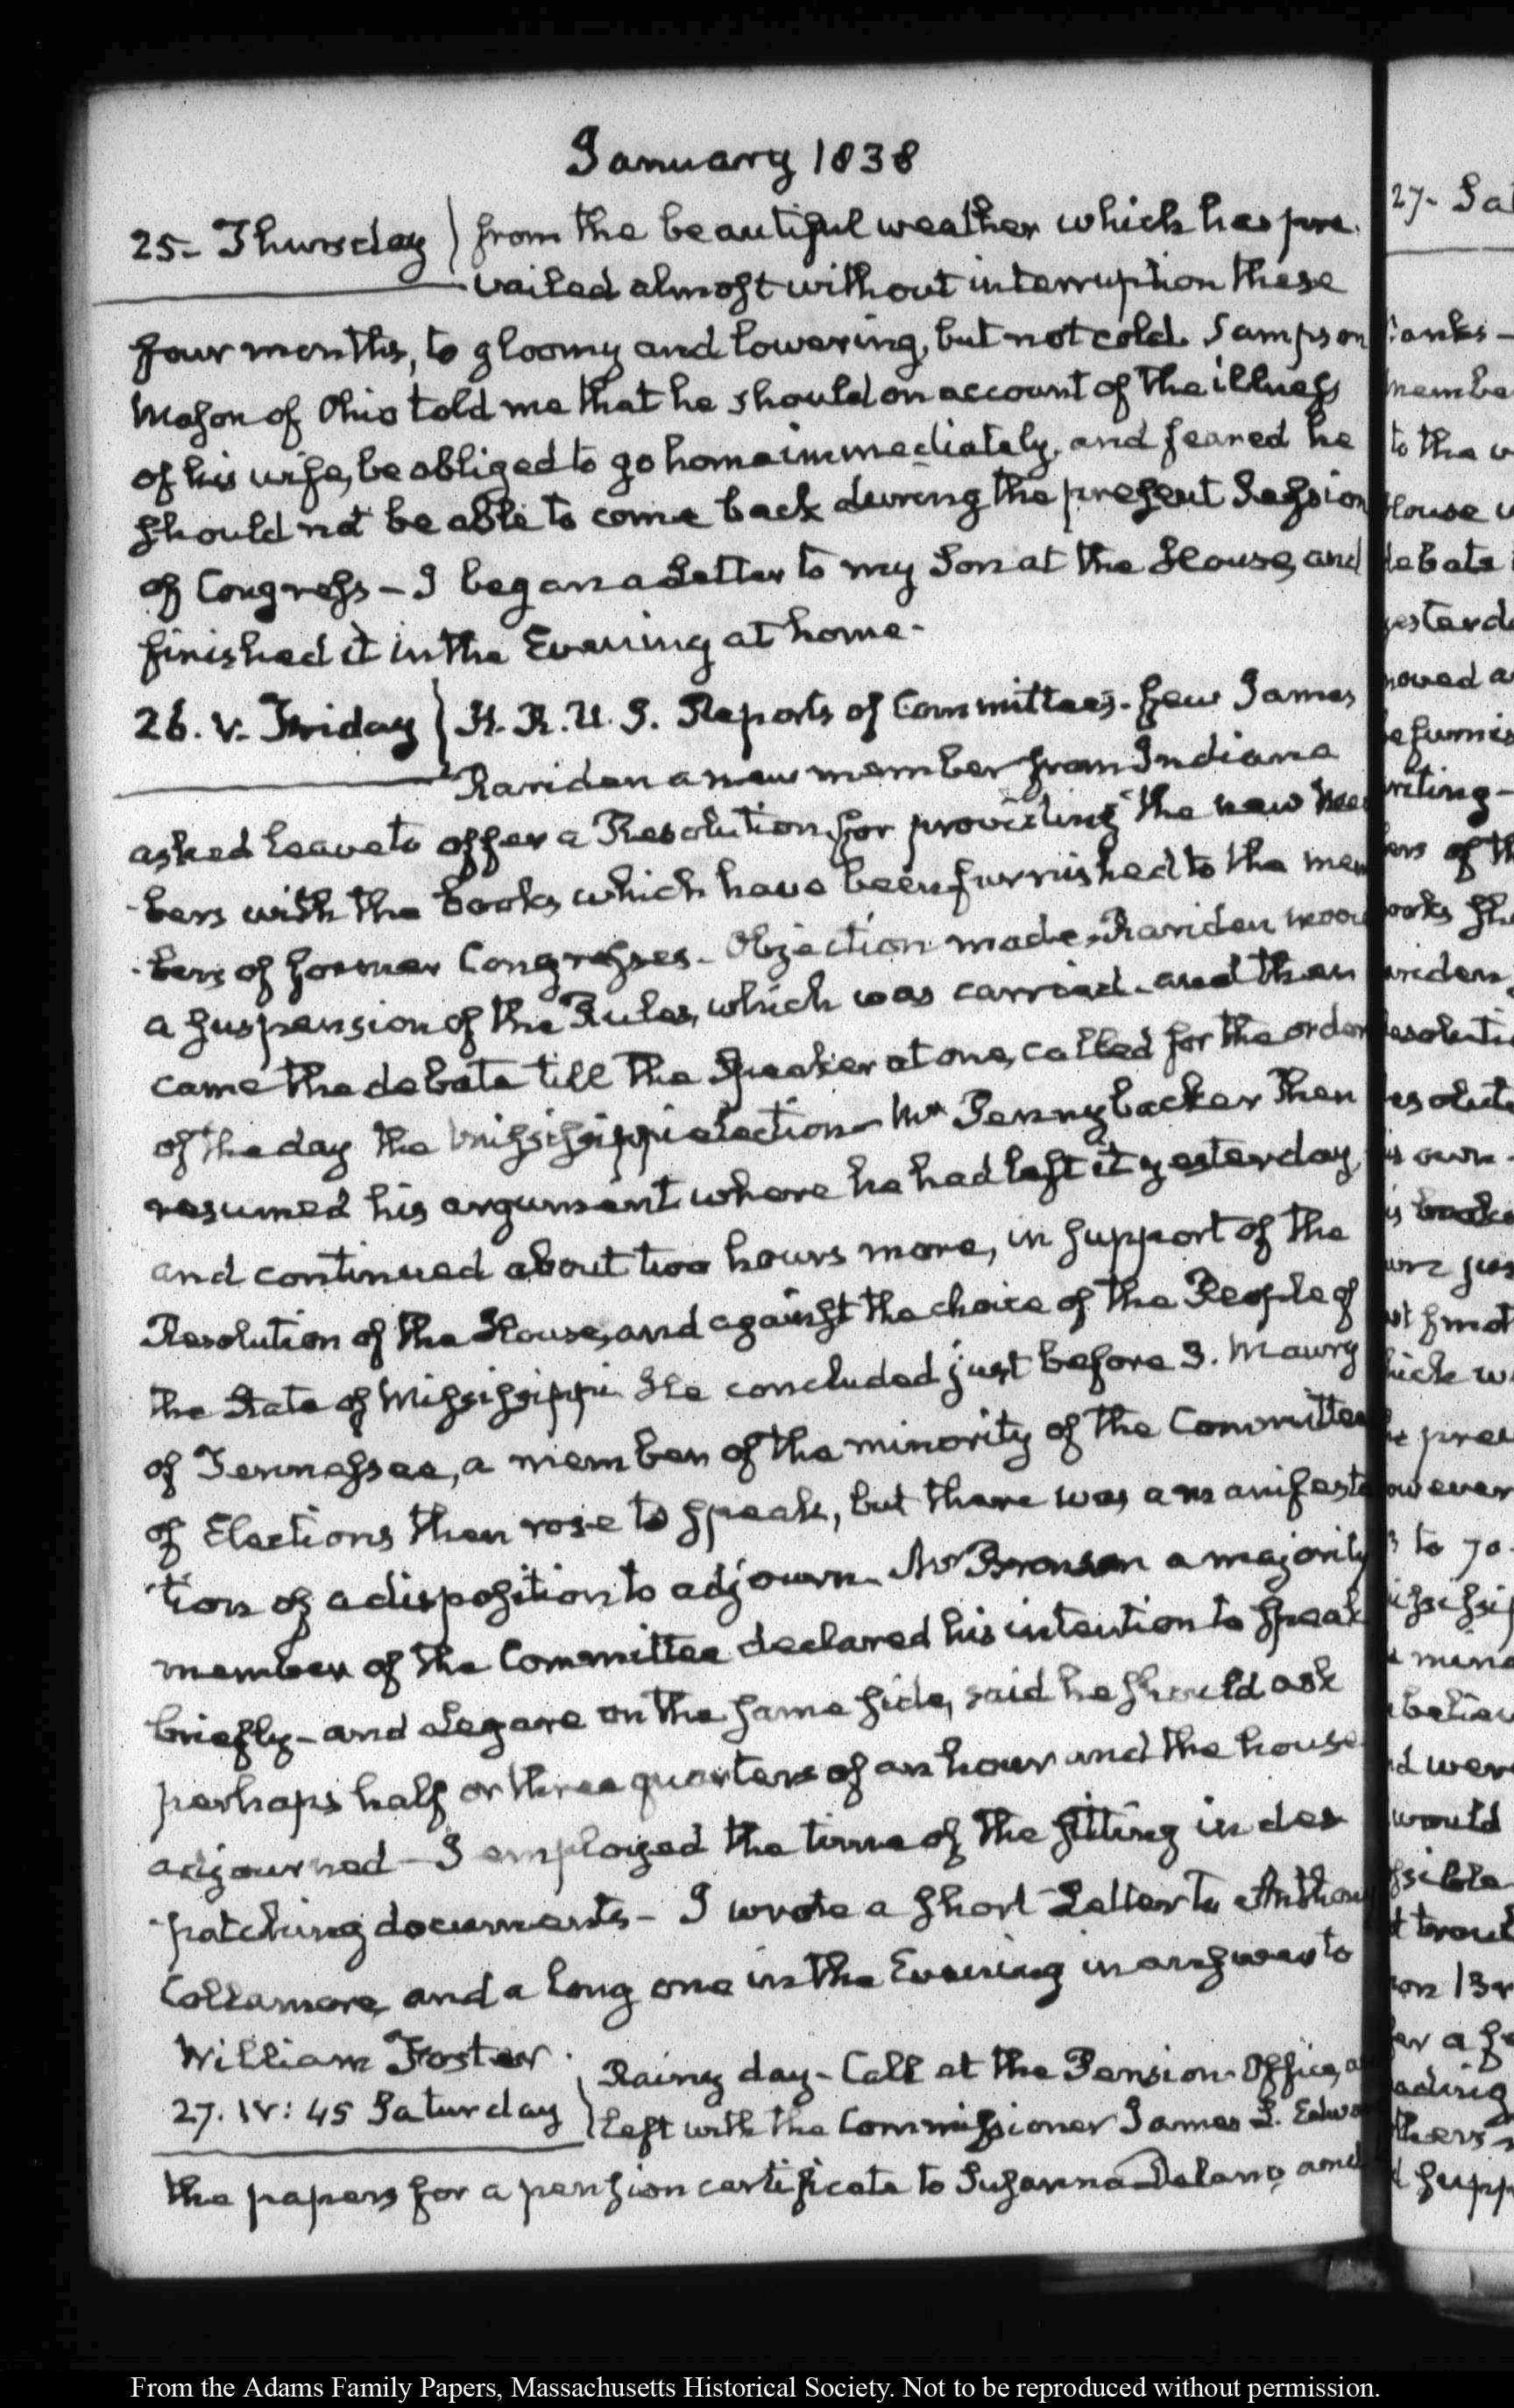 January 1838
25- Thursday } from the beautiful weather which has pre-
vailed almost without interruption these
four months, to gloomy and lowering, but not cold. Sampson
Mason of Ohio told me that he should on account of the illness
of his wife, be obliged to go home immediately, and feared he
should not be able to come back during the present Session
of Congress - I began a Letter to my Son at the House, and
finished it in the Evening at home-
26. V. Friday } H. R. U. S. Reports of Committees. few James
Rariden a new member from Indiana
asked leave to offer a Resolution for providing the new Mem
-bers with the books which have been furnished to the mem
-bers of former Congresses - Objection made, Rariden moved
a suspension of the Rules, which was carried - and then
came the debate till the Speaker at one, called for the order
of the day the Mississippi election - Mr Pennybacker then
resumed his argument where he had left it yesterday,
and continued about two hours more, in support of the
Resolution of the House, and against the choice of the People of
the State of Mississippi He concluded just before 3. Maury
of Tennessee, a member of the minority of the Committee
of Elections then rose to speak, but there was a manifesta
-tion of a disposition to adjourn. Mr Bronson a majority
member of the Committee declared his intention to speak
briefly - and Legare on the same side, said he should ask
perhaps half or three quarters of an hour and the house
adjourned - I employed the time of the sitting in des
-patching documents - I wrote a short Letter to Anthony
Collamore, and a long one in the Evening in answer to
William Foster.
27. IV: 45 Saturday } Rainy day - Call at the Pension Office,
left with the Commissioner James L. Edwar
the papers for a pension certificate to Susanna Delano, and
27- Sat
From the Adams Family Papers, Massachusetts Historical Society. Not to be reproduced without permission.